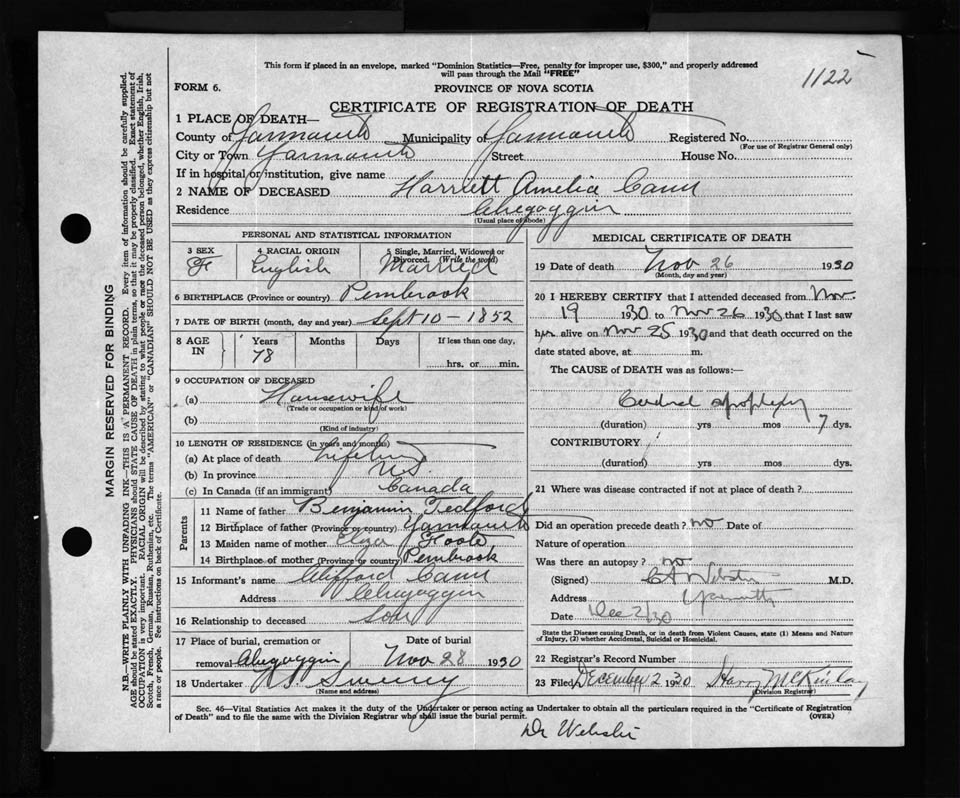 This form if placed in an envelope, marked "Dominion Statistics—Free, penalty for improper use, $300," and properly addressed
will pass through the Mail "FREE"
1122
FORM 6.
PROVINCE OF NOVA SCOTIA
CERTIFICATE OF REGISTRATION OF DEATH
1 PLACE OF DEATH—
County of Yarmouth Municipality of Yarmouth Registered No.
(For use of Registrar General only)
City or Town Yarmouth Street House No.
If in hospital or institution, give name
2 NAME OF DECEASED Harriett Amelia Cann
Residence Chegoggin
(Usual place of abode)
PERSONAL AND STATISTICAL INFORMATION
3 SEX F
4 RACIAL ORIGIN English
5 Single, Married, Widowed or Divorced. (Write the word) Married
6 BIRTHPLACE (Province or country) Pembrook
7 DATE OF BIRTH (month, day and year) Sept 10 - 1852
8 AGE IN Years 78 Months Days If less than one day, hrs. or min.
9 OCCUPATION OF DECEASED
(a) Housewife
(Trade or occupation or kind of work)
(b)
(Kind of industry)
10 LENGTH OF RESIDENCE (in years and months)
(a) At place of death lifetime
(b) In province N.S.
(c) In Canada (if an immigrant) Canada
Parents
11 Name of father Benjamin Tedford
12 Birthplace of father (Province or country) Yarmouth
13 Maiden name of mother Foote
14 Birthplace of mother (Province or country) Pembrook
15 Informant's name Clifford Cann
Address Chegoggin
16 Relationship to deceased son
17 Place of burial, cremation or removal Chegoggin Date of burial Nov 28 1930
18 Undertaker Sweeny
(Name and address)
MEDICAL CERTIFICATE OF DEATH
19 Date of death Nov 26 1930
(Month, day and year)
20 I HEREBY CERTIFY that I attended deceased from Nov.
19 1930 to Nov 26 1930 that I last saw
her alive on Nov 25 1930 and that death occurred on the
date stated above, at m.
The CAUSE of DEATH was as follows:—
Cerebral apoplexy
(duration) yrs mos 7 dys.
CONTRIBUTORY
(duration) yrs mos dys.
21 Where was disease contracted if not at place of death?
Did an operation precede death? no Date of
Nature of operation
Was there an autopsy? no
(Signed) C A Webster M.D.
Address Yarmouth
Date Dec 2/30
State the Disease causing Death, or in death from Violent Causes, state (1) Means and Nature
of Injury, (2) whether Accidental, Suicidal or Homicidal.
22 Registrar's Record Number
23 Filed December 2 1930 Harry McKinlay
(Division Registrar)
Sec. 46—Vital Statistics Act makes it the duty of the Undertaker or person acting as Undertaker to obtain all the particulars required in the "Certificate of Registration
of Death" and to file the same with the Division Registrar who shall issue the burial permit.
(OVER)
Dr Webster
MARGIN RESERVED FOR BINDING
N.B.—WRITE PLAINLY WITH UNFADING INK—THIS IS A PERMANENT RECORD. Every item of information should be carefully supplied.
AGE should be stated EXACTLY. PHYSICIANS should STATE CAUSE OF DEATH in plain terms, so that it may be properly classified. Exact statement of
OCCUPATION is very important. RACIAL ORIGIN will be described by stating to what people or race the deceased person belonged, whether English, Irish,
Scotch, French, German, Russian, Ruthenian, etc. The terms "AMERICAN" or "CANADIAN" SHOULD NOT BE USED as they express citizenship but not
a race or people. See instructions on back of Certificate.